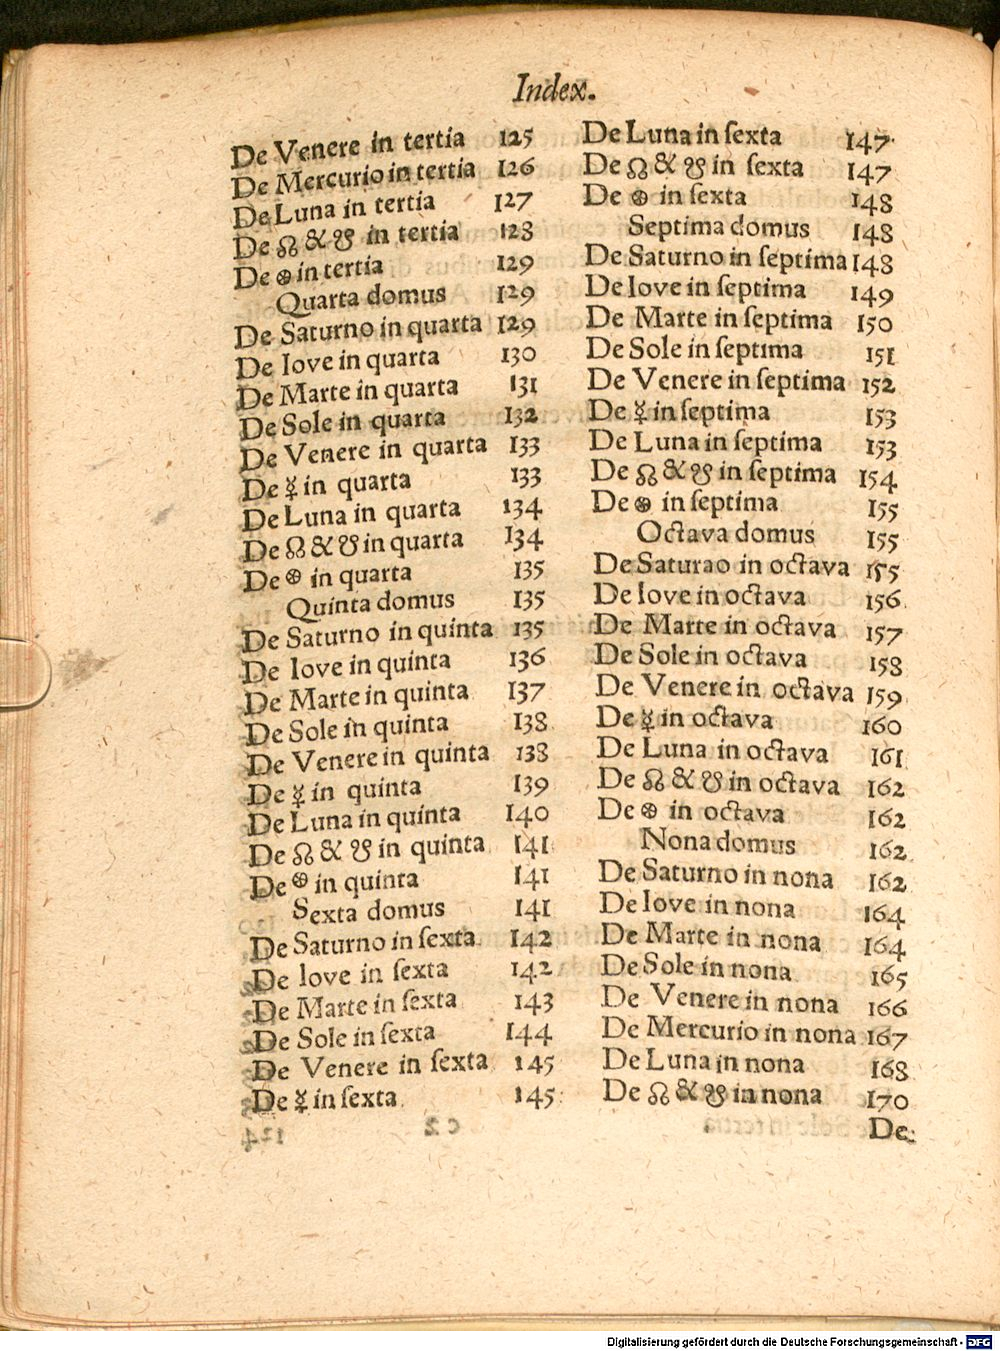 Index.
De Venere in tertia 125
De Mercurio in tertia 126
De Luna in tertia 127
De ☊ & ☋ in tertia 128
De ⊕ in tertia 129
Quarta domus 129
De Saturno in quarta 129
De Iove in quarta 130
De Marte in quarta 131
De Sole in quarta 132
De Venere in quarta 133
De ☿ in quarta 133
De Luna in quarta 134
De ☊ & ☋ in quarta 134
De ⊕ in quarta 135
Quinta domus 135
De Saturno in quinta 135
De Iove in quinta 136
De Marte in quinta 137
De Sole in quinta 138
De Venere in quinta 138
De ☿ in quinta 139
De Luna in quinta 140
De ☊ & ☋ in quinta 141
De ⊕ in quinta 141
Sexta domus 141
De Saturno in ſexta 142
De Iove in ſexta 142
De Marte in ſexta 143
De Sole in ſexta 144
De Venere in ſexta 145
De ☿ in ſexta 145
De Luna in ſexta 147
De ☊ & ☋ in ſexta 147
De ⊕ in ſexta 148
Septima domus 148
De Saturno in ſeptima 148
De Iove in ſeptima 149
De Marte in ſeptima 150
De Sole in ſeptima 151
De Venere in ſeptima 152
De ☿ in ſeptima 153
De Luna in ſeptima 153
De ☊ & ☋ in ſeptima 154
De ⊕ in ſeptima 155
Octava domus 155
De Saturao in octava 155
De Iove in octava 156
De Marte in octava 157
De Sole in octava 158
De Venere in octava 159
De ☿ in octava 160
De Luna in octava 161
De ☊ & ☋ in octava 162
De ⊕ in octava 162
Nona domus 162
De Saturno in nona 162
De Iove in nona 164
De Marte in nona 164
De Sole in nona 165
De Venere in nona 166
De Mercurio in nona 167
De Luna in nona 168
De ☊ & ☋ in nona 170
De
Digitalisierung gefördert durch die Deutsche Forschungsgemeinschaft - DFG